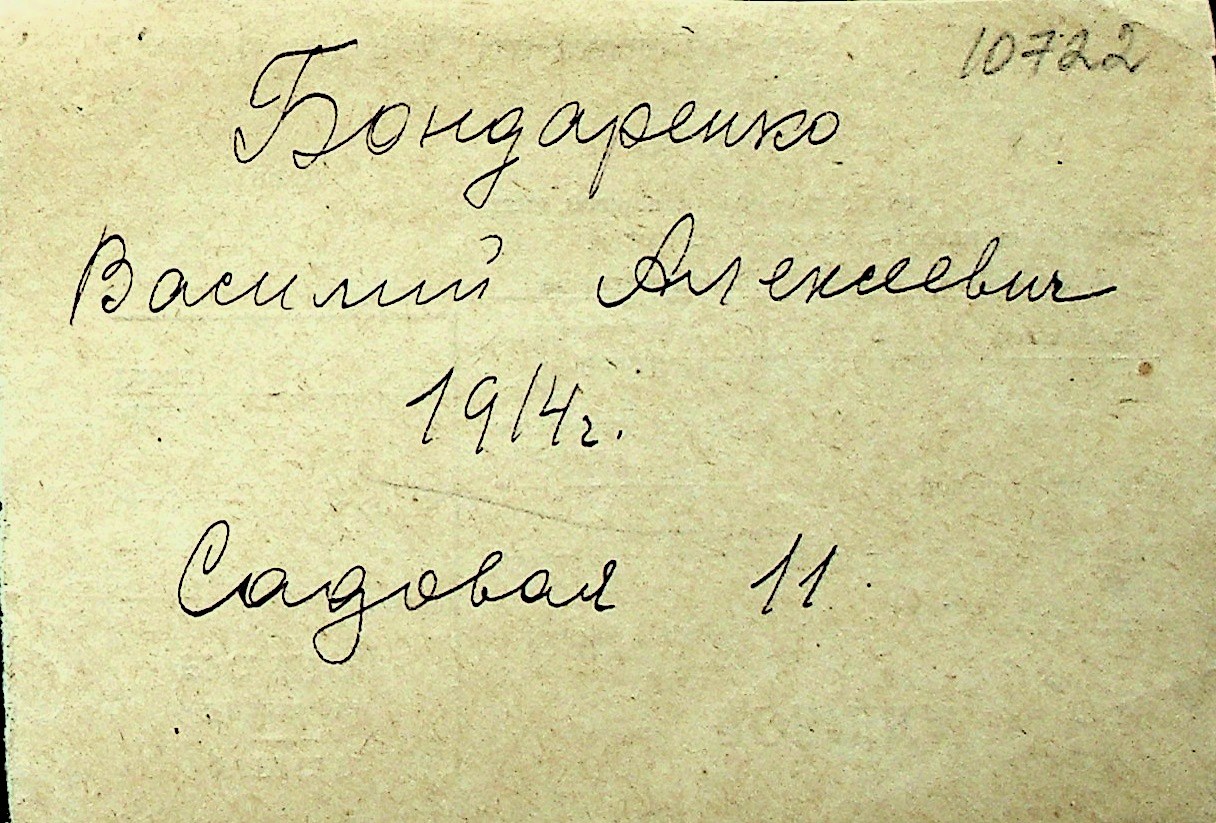 10722
Бондаренко
Василий Алексеевич
1914г.
Садовая 11